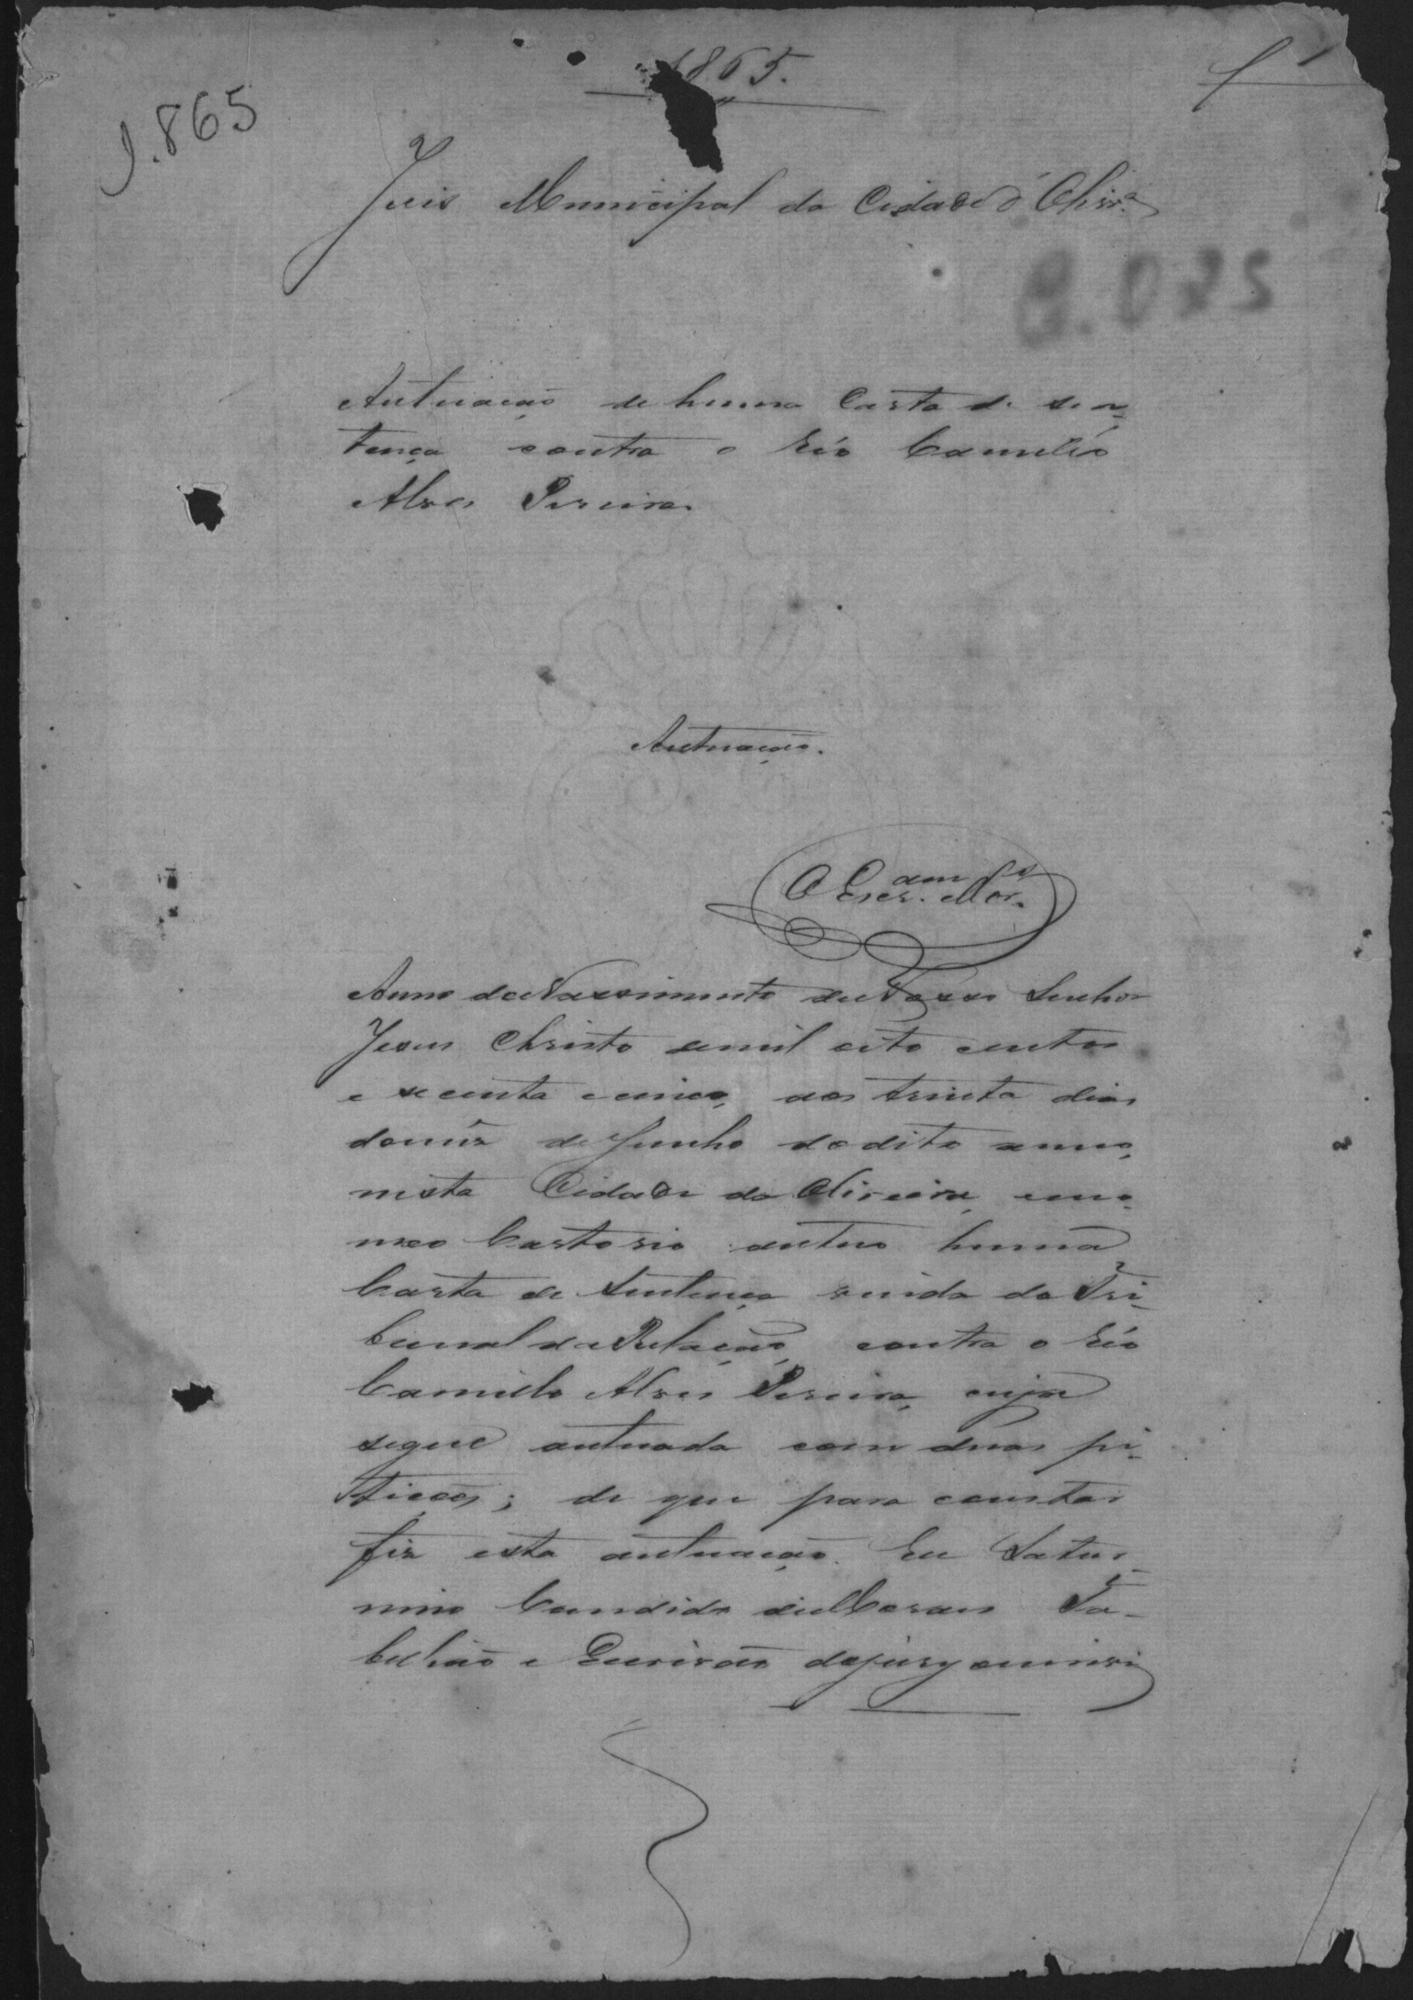 1865.
1.865
Juis Municipal da Cidade d'Olivrª
Autuação de huma Carta de sen-
tença contra o Réo Camillo
Alves Pereira
Autuação.
O Escram. Mor.es
Anno do Nascimento de Nosso Senhor
Jesus Christo de mil oito centos
e secenta e cinco, aos trinta dias
do mêz de Junho do dito anno,
nesta Cidade da Oliveira, em o
meo Cartorio autuo huma
Carta de Sentença vinda do Tri-
bunal da Relação, contra o Réo
Camillo Alves Pereira, cuja
segue autuada com duas pi-
tições; de que para constar
fiz esta autuação. Eu Satur-
nino Candido de Moraes Ta-
belião e Escrivão do jury o escrivi